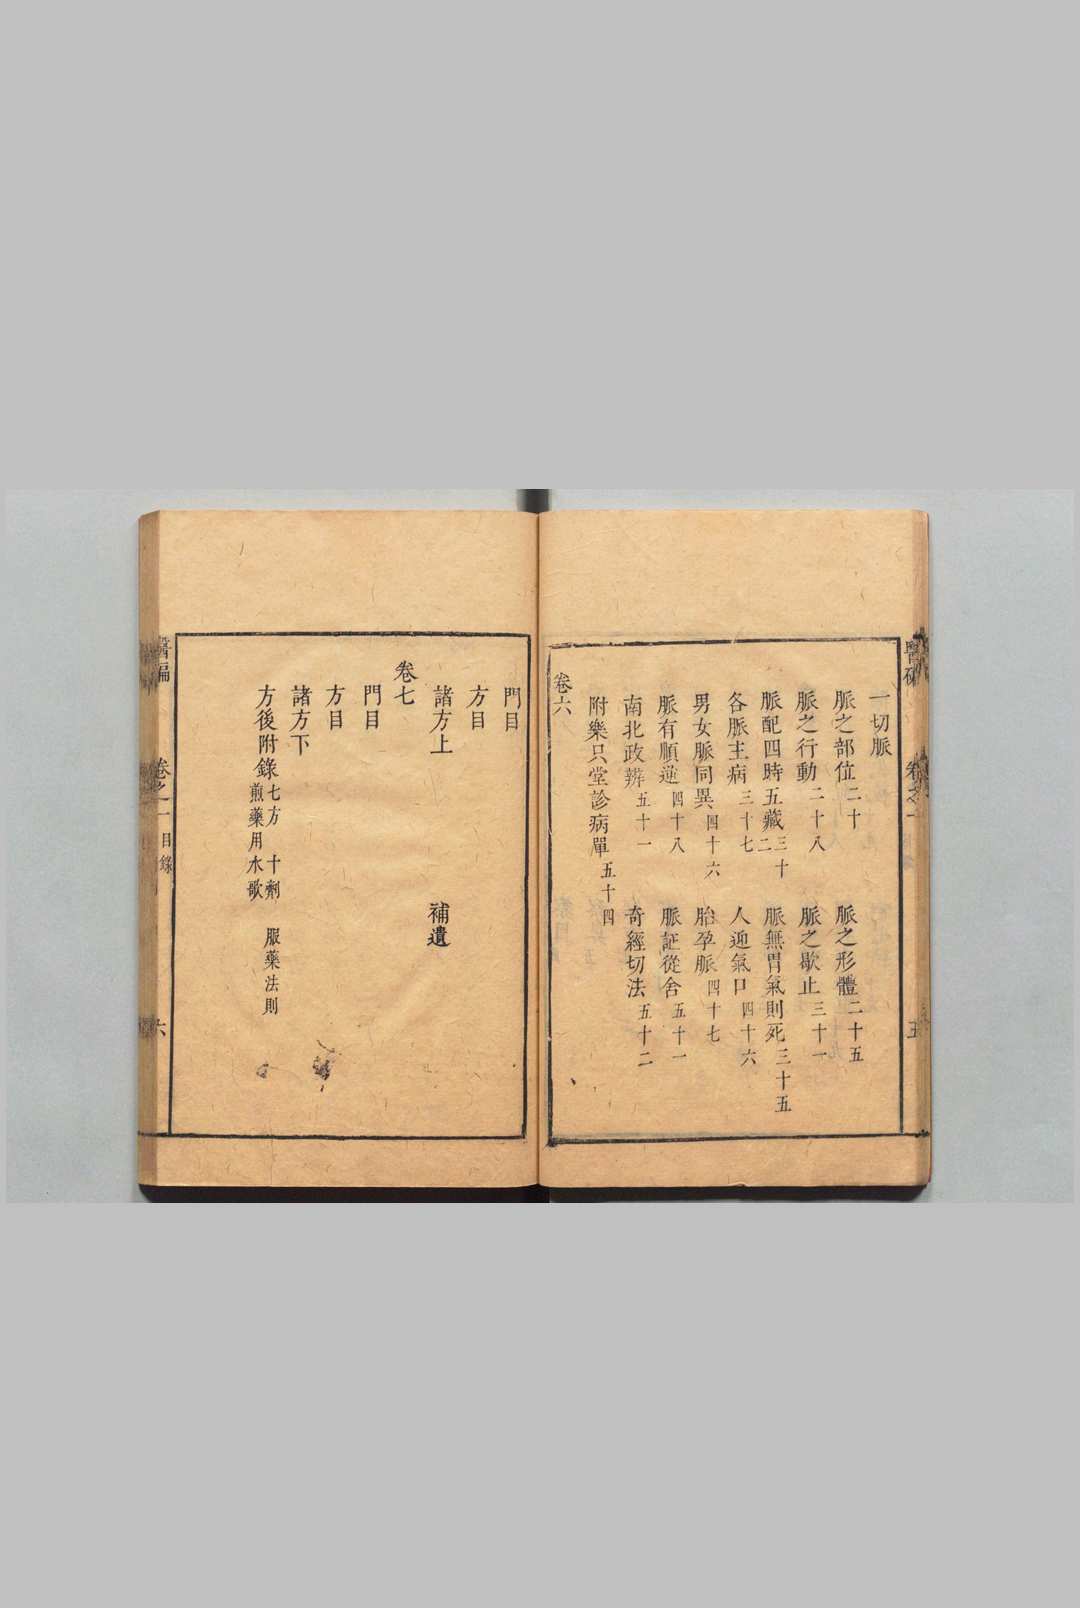 一切脈
脈之部位二十 脈之形體二十五
脈之行動二十八 脈之歇止三十一
脈配四時五藏三十二 脈無胃氣則死三十五
各脈主病三十七 人迎氣口四十六
男女脈同異四十六 胎孕脈四十七
脈有順逆四十八 脈証從舍五十一
南北政辨五十一 奇經切法五十二
附樂只堂診病單五十四
卷六
門目
方目
諸方上 補遺
卷七
門目
方目
諸方下
方後附錄七方 十劑 服藥法則
煎藥用水歌
卷之一 目錄 六